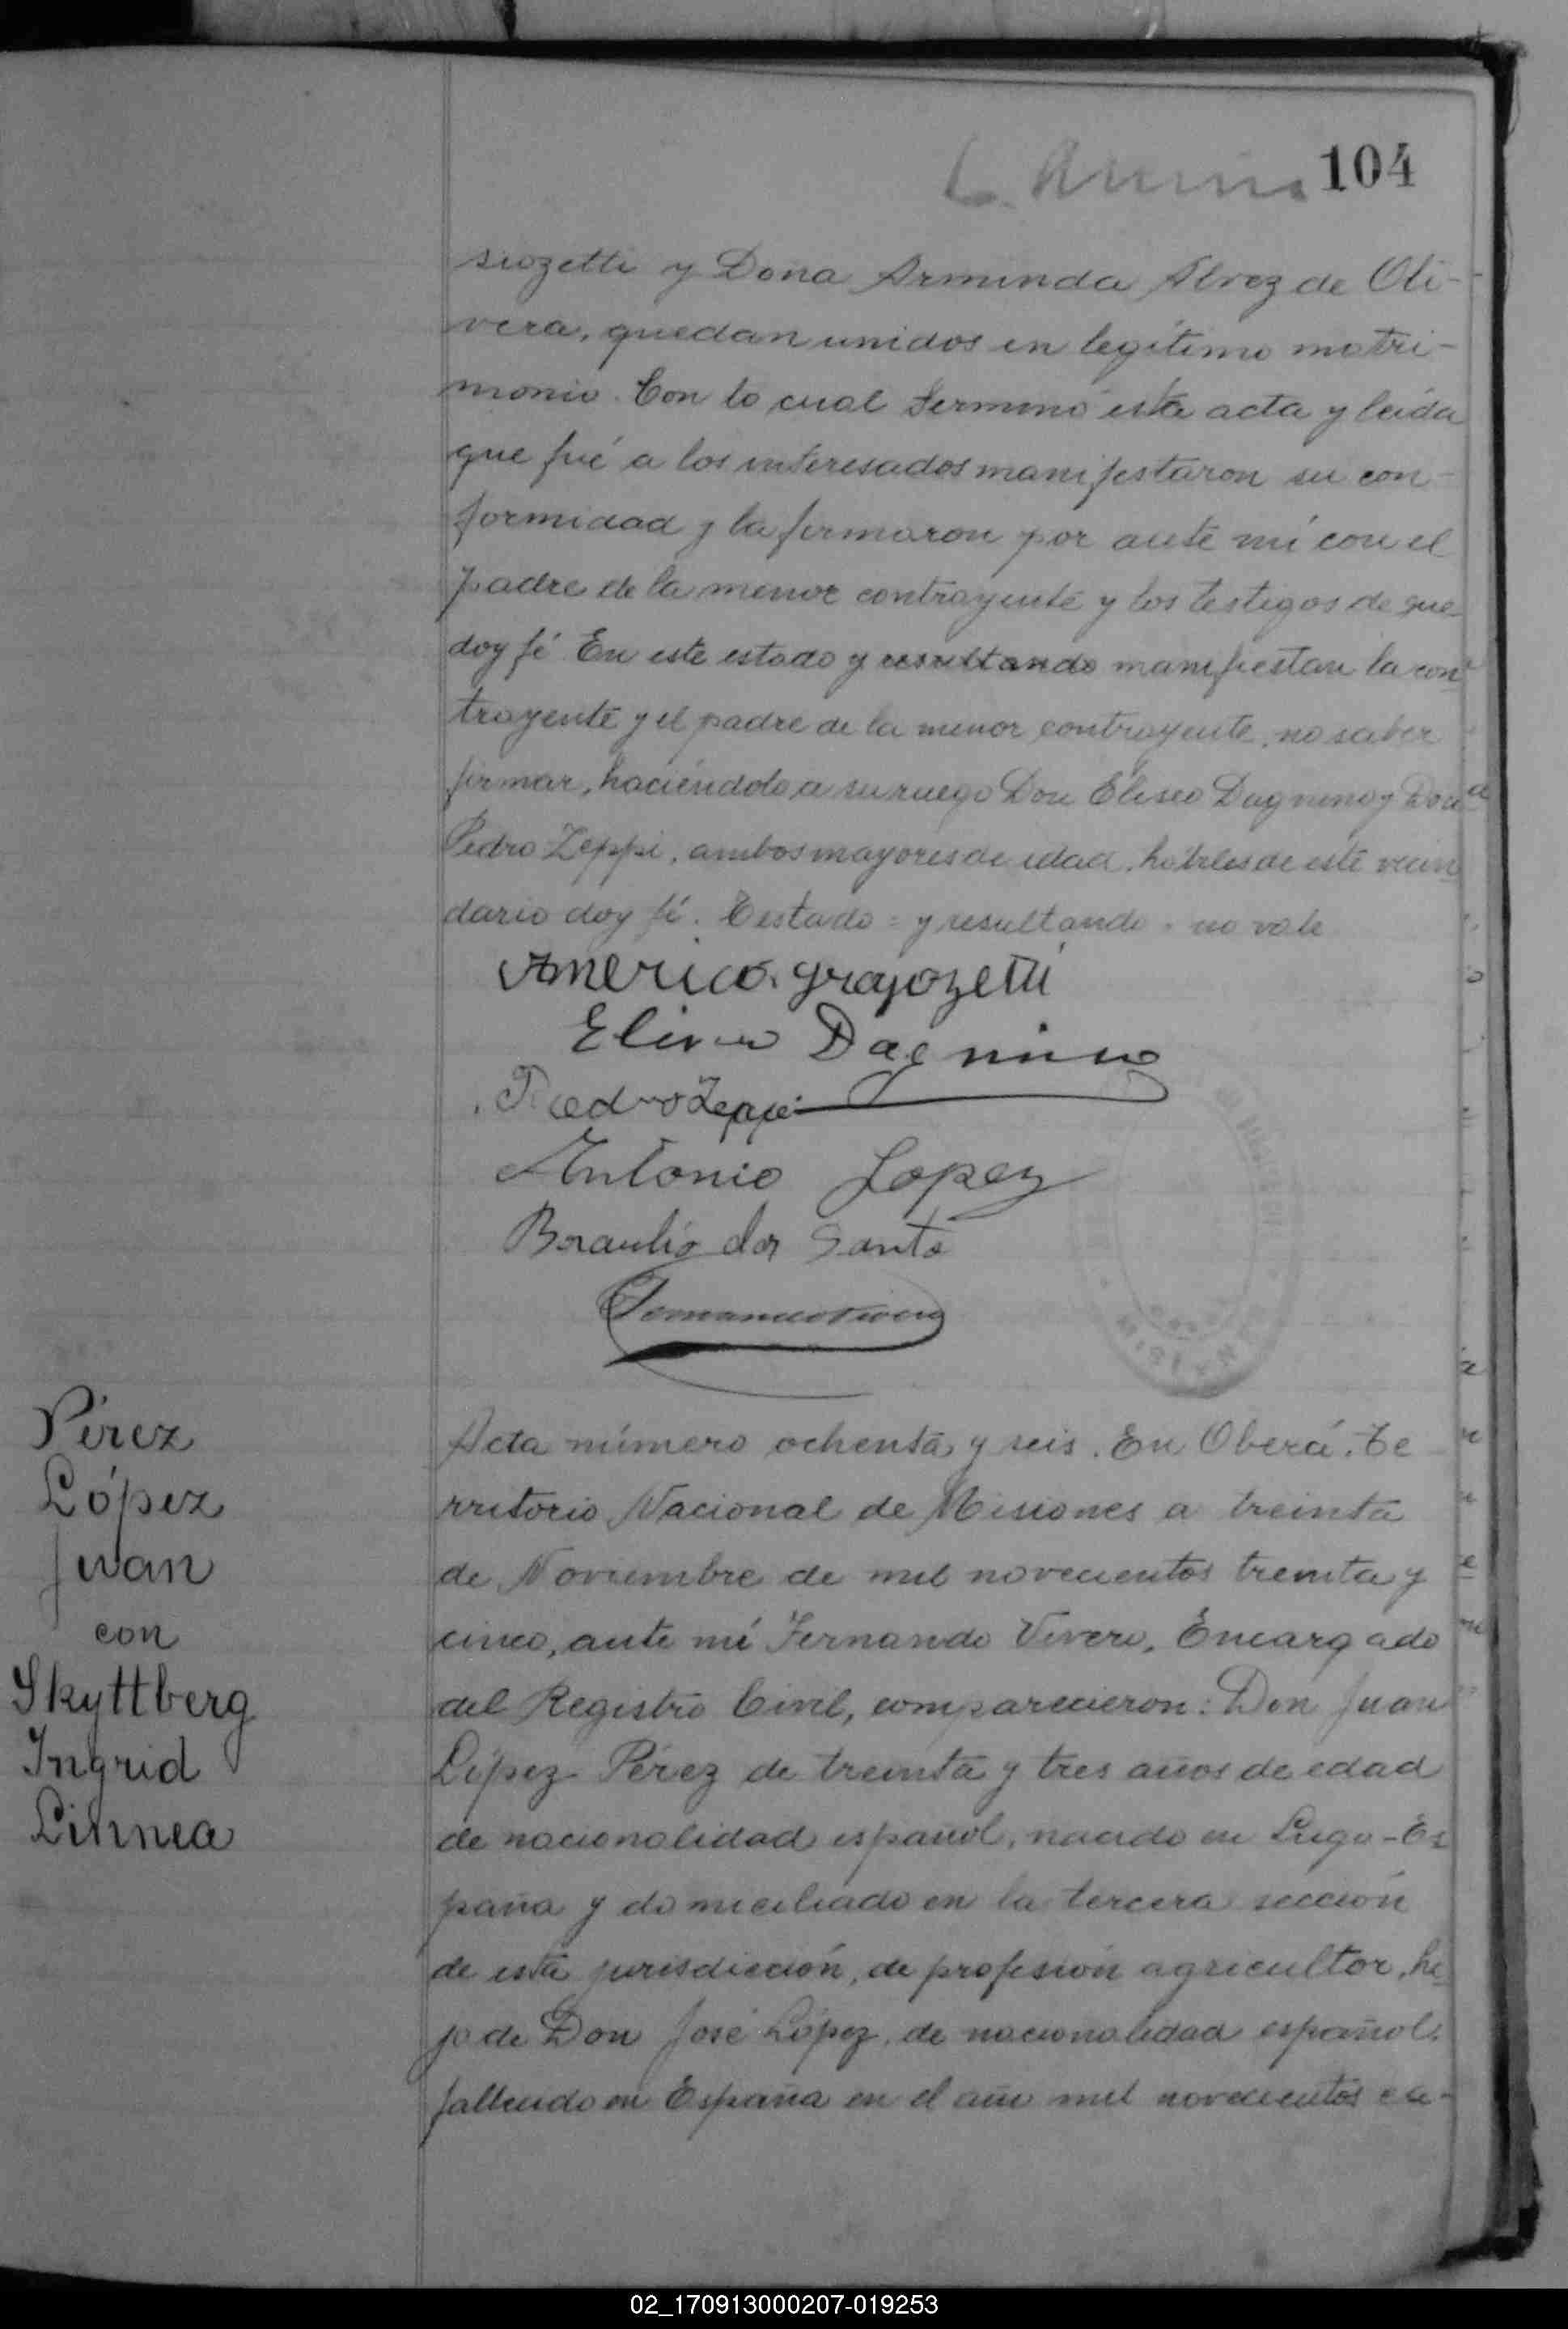 104
siozetti y Doña Arminda Alvez de Oli-
vera, quedan unidos en legítimo matri-
monio. Con lo cual terminó esta acta y leída
que fué a los interesados manifestaron su con-
formidad y la firmaron por ante mí con el
padre de la menor contrayente y los testigos de que
doy fé. En este estado y resultando manifiestan la con-
trayente y el padre de la menor contrayente, no saber
firmar, haciéndolo a su ruego Don Eliseo Dagnino y Don
Pedro Zeppi, ambos mayores de edad, hábiles de este vecin
dario doy fé. Testado = y resultando = no vale
Americo
Eliseo Dagnino
Pedro Zeppi
Antonio Lopez
Braulio dos Santo
Fernando Vivero
Pérez
López
Juan
con
Skyttberg
Ingrid
Linnea
Acta número ochenta y seis. En Oberá, Te
rritorio Nacional de Misiones a treinta
de Noviembre de mil novecientos treinta y
cinco, ante mí Fernando Vivero, Encargado
del Registro Civil, comparecieron: Don Juan
López Pérez de treinta y tres años de edad
de nacionalidad español, nacido en Lugo-Es
paña y domiciliado en la tercera sección
de esta jurisdicción, de profesión agricultor, hi
jo de Don José López, de nacionalidad español,
fallecido en España en el año mil novecientos
02_170913000207-019253